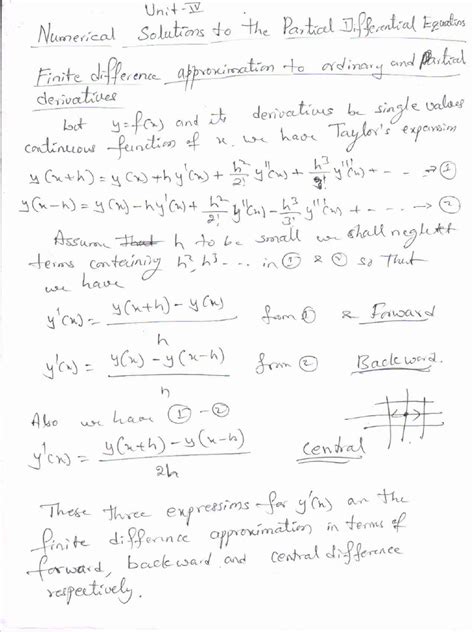 Unit-IV
Numerical Solutions to the Partial Differential Equations
Finite difference approximation to ordinary and Partial
derivatives
Let y=f(x) and its derivatives be single values
continuous function of x. we have Taylor's expansion
y(x+h) = y(x)+hy'(x)+ h²/2! y''(x)+ h³/3! y'''(x)+ - - - → ①
y(x-h) = y(x)-hy'(x)+ h²/2! y''(x)- h³/3! y'''(x)+ - - - → ②
Assume that h to be small we shall neglect
terms containing h², h³ ... in ① & ② so that
we have
y'(x) = y(x+h)-y(x) / h from ① & Forward
y'(x) = y(x)-y(x-h) / h from ② Backward.
Also we have ① - ②
y'(x) = y(x+h)-y(x-h) / 2h central
These three expressions for y'(x) are the
finite difference approximation in terms of
forward, backward and central difference
respectively.